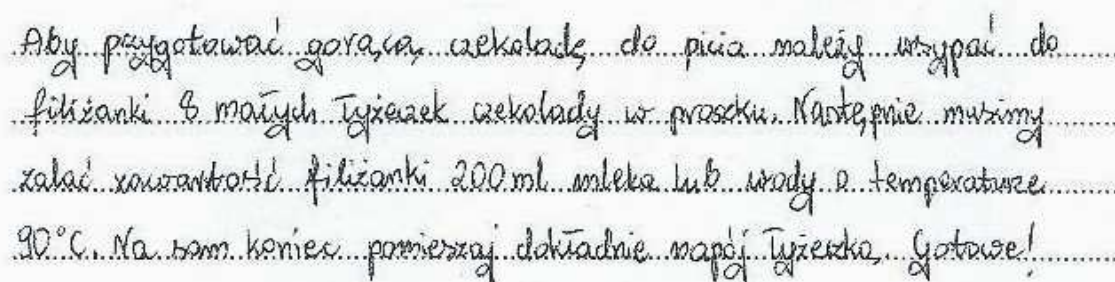 Aby przygotować gorącą czekoladę do picia należy wsypać do
filiżanki 8 małych łyżeczek czekolady w proszku. Następnie musimy
zalać zawartość filiżanki 200 ml mleka lub wody o temperaturze
90°C. Na sam koniec pomieszaj dokładnie napój łyżeczką. Gotowe!